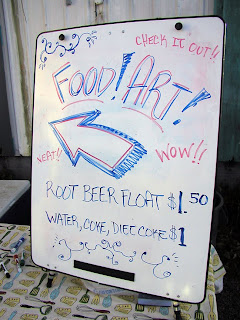 CHECK IT OUT!!
FOOD! ART!
NEAT!!
WOW!!!
ROOT BEER FLOAT $1.50
WATER, COKE, DIET COKE $1